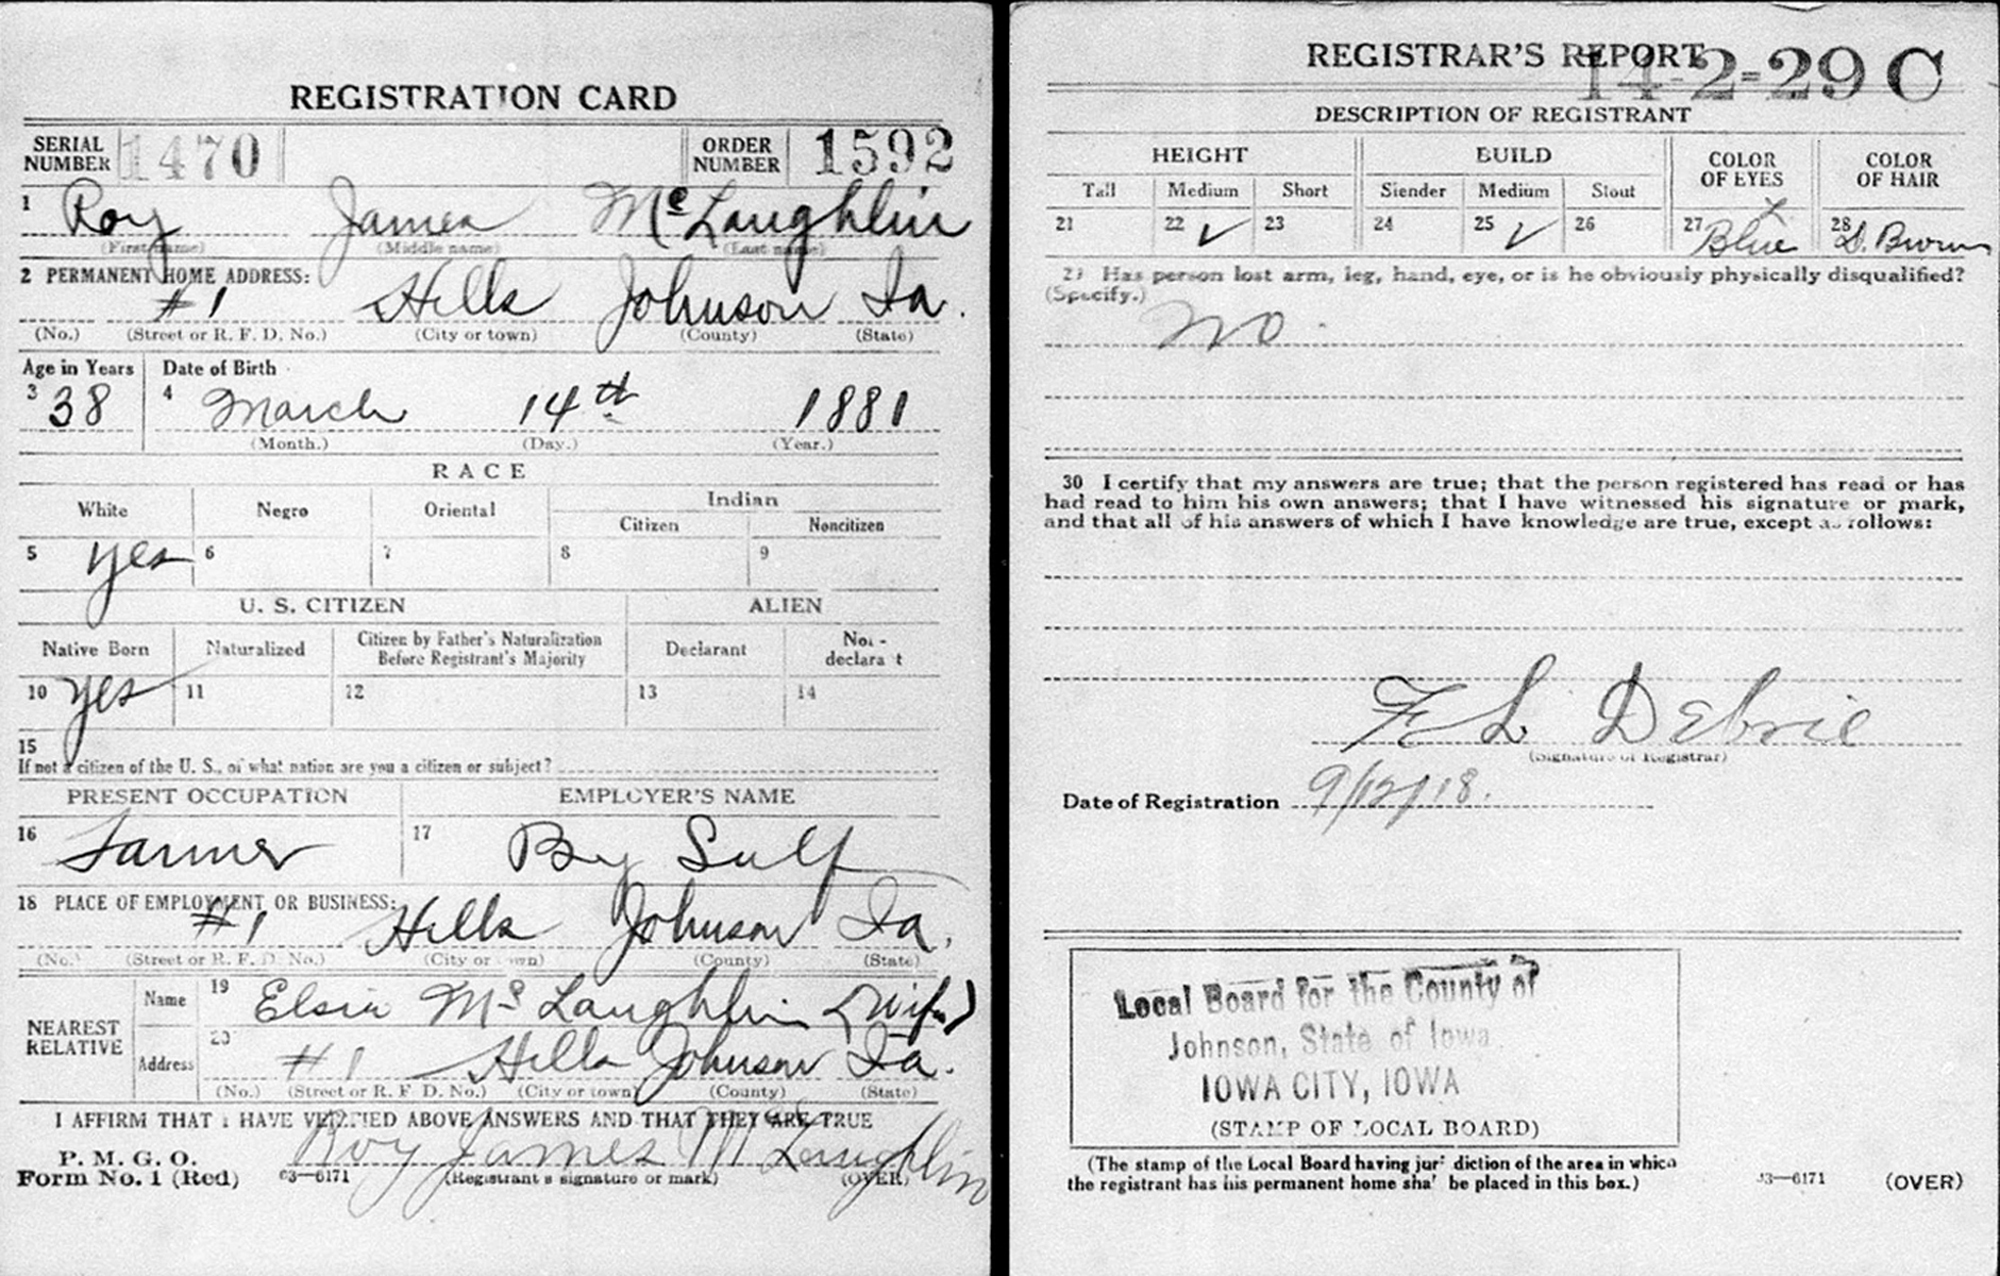 REGISTRATION CARD
SERIAL NUMBER 1470 ORDER NUMBER 1592
1 Roy James McLaughlin
(First name) (Middle name) (Last name)
2 PERMANENT HOME ADDRESS:
#1 Hills Johnson Ia.
(No.) (Street or R. F. D. No.) (City or town) (County) (State)
Age in Years Date of Birth
3 38 4 March 14th 1881
(Month.) (Day.) (Year.)
RACE
White Negro Oriental Indian
Citizen Noncitizen
5 yes 6 7 8 9
U. S. CITIZEN ALIEN
Native Born Naturalized Citizen by Father's Naturalization Before Registrant's Majority Declarant Non-declarant
10 yes 11 12 13 14
15
If not a citizen of the U. S., of what nation are you a citizen or subject?
PRESENT OCCUPATION EMPLOYER'S NAME
16 Farmer 17 By Self
18 PLACE OF EMPLOYMENT OR BUSINESS:
#1 Hills Johnson Ia.
(No.) (Street or R. F. D. No.) (City or town) (County) (State)
NEAREST RELATIVE
Name 19 Elsie McLaughlin (wife)
Address 20 #1 Hills Johnson Ia.
(No.) (Street or R. F. D. No.) (City or town) (County) (State)
I AFFIRM THAT I HAVE VERIFIED ABOVE ANSWERS AND THAT THEY ARE TRUE
P. M. G. O.
Form No. 1 (Red) 03—6171 Roy James McLaughlin
(Registrant's signature or mark) (OVER)
REGISTRAR'S REPORT 14-2-29 C
DESCRIPTION OF REGISTRANT
HEIGHT BUILD COLOR OF EYES COLOR OF HAIR
Tall Medium Short Slender Medium Stout
21 22 ✓ 23 24 25 ✓ 26 27 Blue 28 D. Brown
29 Has person lost arm, leg, hand, eye, or is he obviously physically disqualified?
(Specify.)
No.
30 I certify that my answers are true; that the person registered has read or has
had read to him his own answers; that I have witnessed his signature or mark,
and that all of his answers of which I have knowledge are true, except as follows:
F L Debrie
(Signature of Registrar)
Date of Registration 9/12/18.
Local Board for the County of
Johnson, State of Iowa
IOWA CITY, IOWA
(STAMP OF LOCAL BOARD)
(The stamp of the Local Board having jurisdiction of the area in which
the registrant has his permanent home shall be placed in this box.)
03—6171 (OVER)